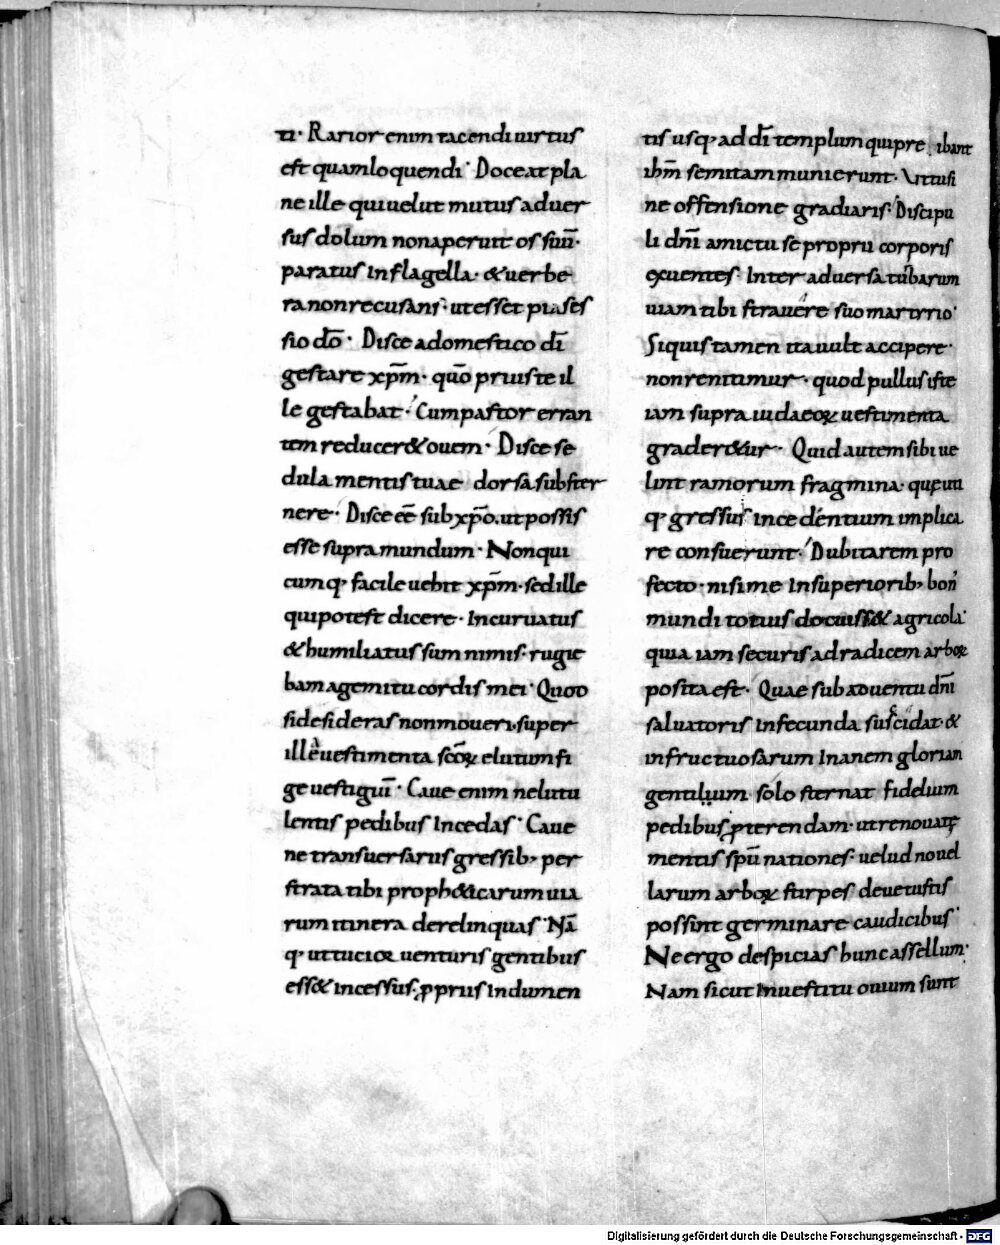 ti· Rarior enim tacendi uirtus
est quam loquendi· Doceat pla
ne ille qui uelut mutus aduer
sus dolum non aperuit os suū·
paratus in flagella· & uerbe
ra non recusans· ut esset pia ses
sio dō· Disce a domestico dī
gestare xp̄m· quō prius te il
le gestabat· Cum pastor erran
tem reducer& ouem· Disce se
dula mentis tuae dorsa subster
nere· Disce eē sub xp̄o, ut possis
esse supra mundum· Non qui
cumq; facile uehit xp̄m· sed ille
qui potest dicere· Incuruatus
& humiliatus sum nimis· rugie
bam a gemitu cordis mei· Quod
si desideras non moueri, super
ille uestimenta scōꝝ elutum fi
ge uestigiū· Caue enim ne lutu
lentis pedibus incedas· Caue
ne transuersariis gressib; per
strata tibi proph&icarum uia
rum itinera derelinquas· Nā
q; ut tucioꝝ uenturis gentibus
ess& incessus, ꝓpriis indumen
tis usq; ad dī templum qui pre ibant
ihm̄ semitam munierunt· Ut tu si
ne offensione gradiaris· Discipu
li dn̄i amictu se proprii corporis
exuentes· Inter aduersa tubarum
uiam tibi strauere suo martyrio·
Si quis tamen ita uult accipere·
non renitimur· quod pullus iste
iam supra iudaeoꝝ uestimenta
grader&ur· Quid autem sibi ue
lint ramorum fragmina· quę uti
q; gressus incedentium implica
re consuerunt· Dubitarem pro
fecto· nisi me in superiorib; bon'
mundi totius docuiss& agricola·
quia iam securis ad radicem arboꝝ
posita est· Quae sub aduentu dn̄i
saluatoris infecunda suscidat· &
infructuosarum inanem gloriam
gentilium solo sternat fidelium
pedibus ꝓterendam· ut renouatę
mentis spū nationes· uelud nouel
larum arboꝝ stirpes deuetustis
possint germinare caudicibus·
Ne ergo despicias hunc assellum·
Nam sicut in uestitu ouium sunt
Digitalisierung gefördert durch die Deutsche Forschungsgemeinschaft - DFG